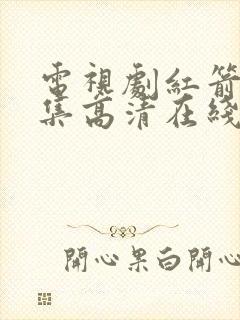 電視劇紅箭
集高清在綫
開心果白開心